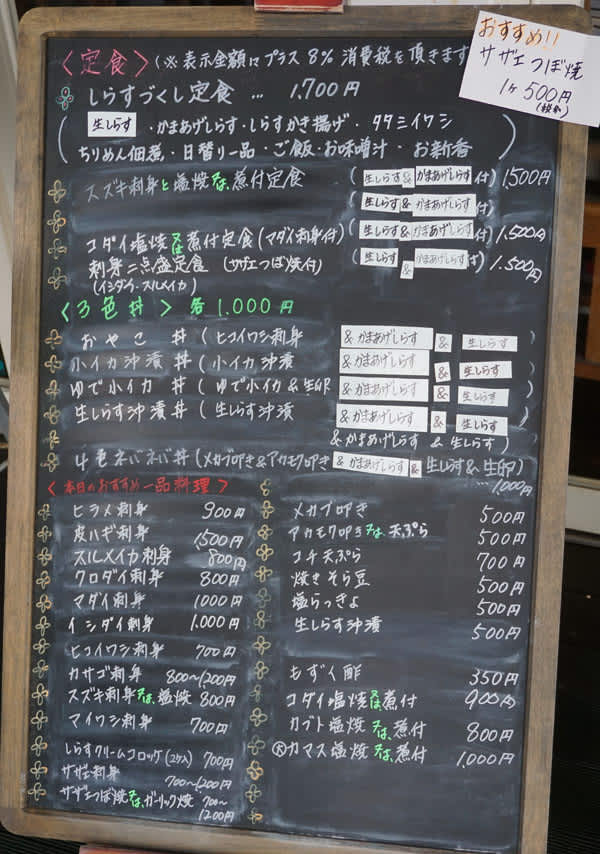 おすすめ!!
サザエつぼ焼
1ケ500円
(税別)
<定食>(※表示金額にプラス8%消費税を頂きます
しらすづくし定食 … 1,700円
(生しらす・かまあげしらす・しらすかき揚げ・タタミイワシ
ちりめん佃煮・日替り一品・ご飯・お味噌汁・お新香)
スズキ刺身と塩焼又は煮付定食 (生しらす&かまあげしらす付) 1,500円
(生しらす&かまあげしらす付)
コダイ塩焼又は煮付定食(マダイ刺身付) (生しらす&かまあげしらす付) 1,500円
刺身二点盛定食 (サザエつぼ焼付) (生しらす&かまあげしらす付) 1,500円
(イシダイ・スルメイカ)
<3色丼> 各1,000円
おやこ丼 (ヒコイワシ刺身 &かまあげしらす & 生しらす)
小イカ沖漬丼 (小イカ沖漬 &かまあげしらす & 生しらす
ゆで小イカ丼 (ゆで小イカ&生卵 &かまあげしらす & 生しらす
生しらす沖漬丼 (生しらす沖漬 &かまあげしらす & 生しらす
&かまあげしらす & 生しらす)
4色ネバネバ丼(メカブ叩き&アカモク叩き &かまあげしらす & 生しらす&生卵)
…1,000円
<本日のおすすめ一品料理>
ヒラメ刺身 900円
皮ハギ刺身 1,500円
スルメイカ刺身 800円
クロダイ刺身 800円
マダイ刺身 1000円
イシダイ刺身 1,000円
ヒコイワシ刺身 700円
カサゴ刺身 800〜1200円
スズキ刺身又は、塩焼 800円
マイワシ刺身 700円
しらすクリームコロッケ(2ケ入) 700円
サザエ刺身 700〜1200円
サザエつぼ焼又は、ガーリック焼 700〜
1200円
メカブ叩き 500円
アカモク叩き又は、天ぷら 500円
コチ天ぷら 700円
焼きそら豆 500円
塩らっきょ 500円
生しらす沖漬 500円
もずく酢 350円
コダイ塩焼又は煮付 900円
カブト塩焼又は、煮付 800円
大カマス塩焼又は、煮付 1,000円